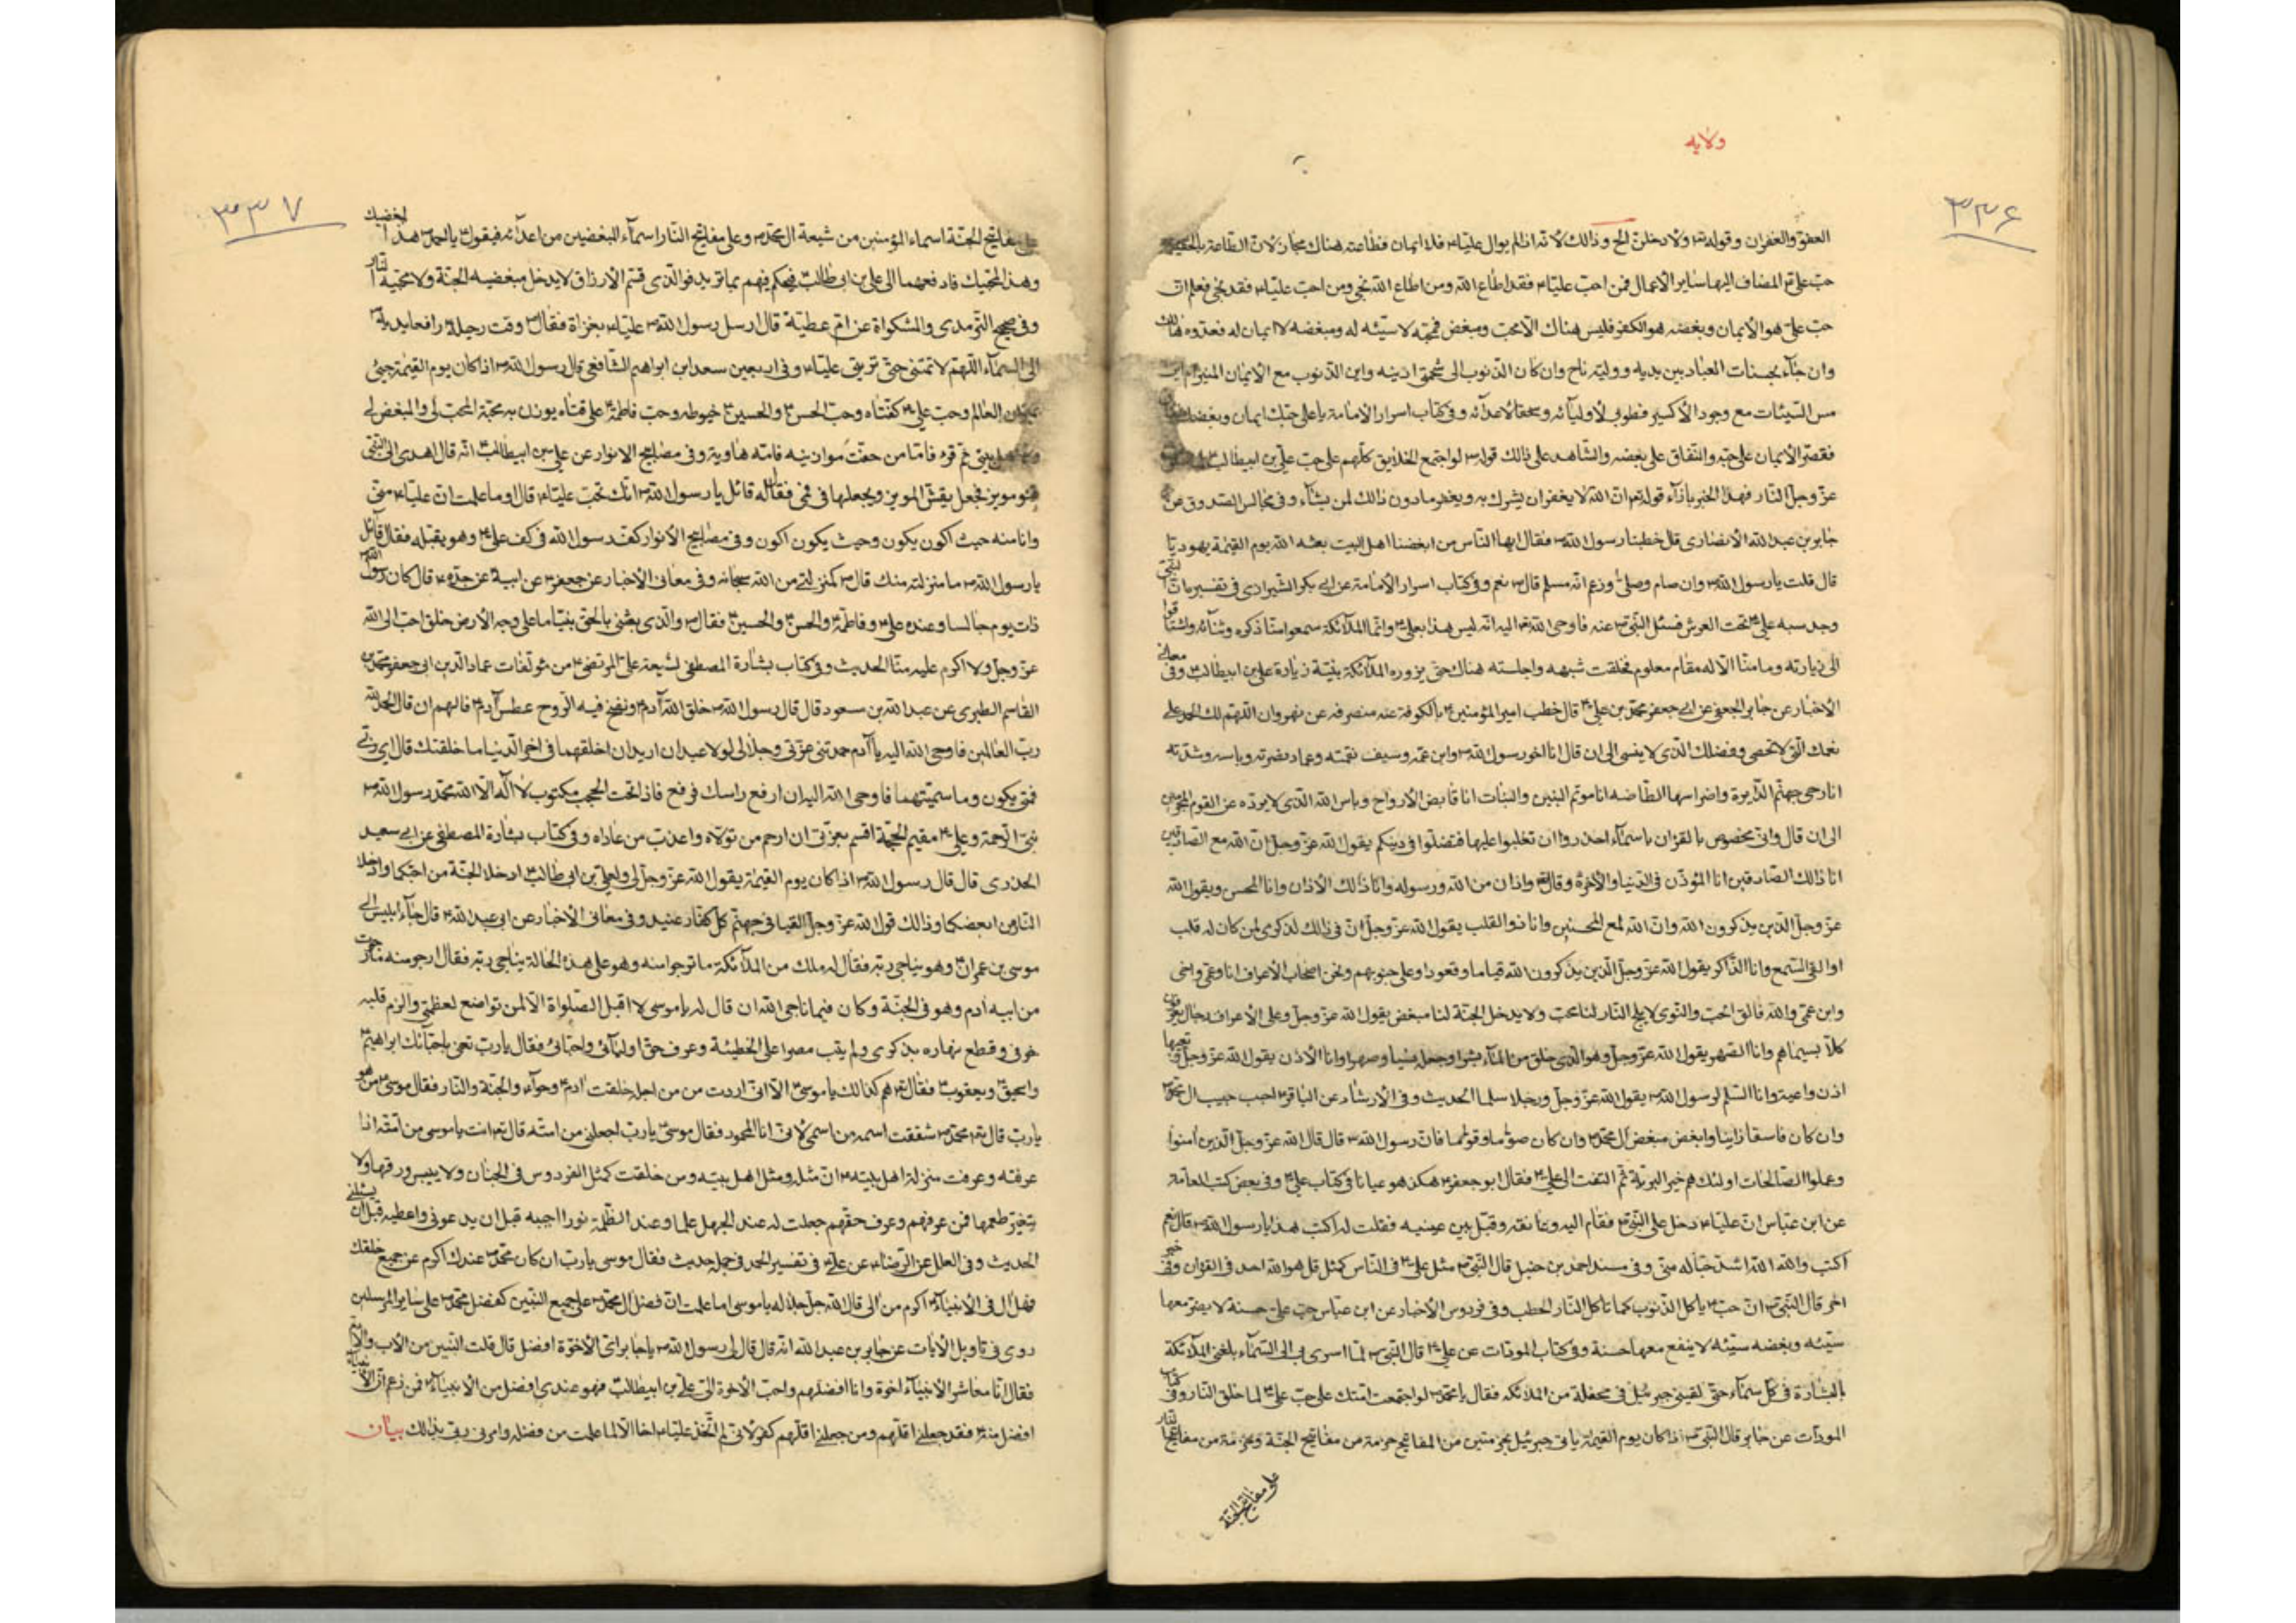 ولایه
۳۳۶
العفو والغفران وقوله تع ولادخلن الخ وذالك لانه اذا لم يوال عليّا۴ فلا ايمان فطاعته هناك مجاز لان الطاعة بالحقيقة
حبّ علی۴ المضاف اليها ساير الأعمال فمن احبّ عليّا۴ فقد اطاع الله ومن اطاع الله نجى ومن احبّ عليّا۴ فقد نجى فعلم انّ
حبّ علیّ هو الأيمان وبغضه هو الكفر فليس هناك الّا محبّ ومبغض فمحبّه لا سيّئه له ومبغضه لا ايمان له فعدوّه هالك
وان جآء بحسنات العباد بين يديه ووليّه ناج وان كان الذنوب الى شحمتى اذنيه واين الذنوب مع الايمان المنير ام اين
مس السّيئات مع وجود الأكسير فطوبى لأوليآئه وسحقا لاعدآئه وفى كتاب اسرار الأمامة يا على حبّك ايمان وبغضك نفاق
فقصر الأيمان على حبّه والنّفاق على بغضه والشاهد على ذالك قوله ص لو اجتمع الخلايق كلّهم على حبّ علیّ بن ابيطالب
عزّ وجلّ النّار فهذا الخبر بازآء قوله تع انّ الله لا يغفر ان يشرك به ويغفر ما دون ذالك لمن يشآء وفى مجالس الصدوق عن
جابر بن عبد الله الأنصارى قال خطبنا رسول الله ص فقال ايها الناس من ابغضنا اهل البيت بعثه الله يوم القيمة يهوديّا
قال قلت يا رسول الله ص وان صام وصلّى وزعم انّه مسلم قال ص نعم وفى كتاب اسرار الأمامة عن ابى بكر الشيرازى فى تفسيره انّ النبى
وجد سبه علی۴ تحت العرش فسئل النّبی ص عنه فاوحى الله تع اليه انّه ليس هذا بعلی۴ وانّما الملآئكة سمعوا منّا ذكره وثنآئه واشتاقوا
الى زيارته وما منّا الّا له مقام معلوم فخلقت شبهه واجلسته هناك حتّى يزوره الملآئكة بنيّة زيارة على بن ابيطالب۴ وفى معانى
الأخبار عن جابر الجعفى عن ابى جعفر محمّد بن على۴ قال خطب امير المؤمنين۴ بالكوفة عند منصرفه عن نهروان اللهمّ لك الحمد على
نعمك الّتى لا تحصى وفضلك الّذى لا ينسى الى ان قال انا اخو رسول الله ص وابن عمّه وسيف نقمته وعماد نصرته وباسه وشدّته
انا رحى جهنّم الدّآيرة واضراسها الطاحنه انا موتم البنين والبنات انا قابض الأرواح وباس الله الّذى لا يردّه عن القوم المجرمين
الى ان قال وانّى مخصوص بالقران باسمآء احذروا ان تغلبوا عليها فتضلّوا فى دينكم يقول الله عزّ وجلّ انّ الله مع الصّادقين
انا ذالك الصّادقين انا المؤذّن فى الدّنيا والأخرة وقال تع واذان من الله ورسوله وانا ذالك الأذان وانا المحسن ويقول الله
عزّ وجلّ الّذين يذكرون الله وانّ الله لمع المحسنين وانا ذو القلب يقول الله عزّ وجلّ انّ فى ذالك لذكرى لمن كان له قلب
او القى السّمع وانا الذّاكر يقول الله عزّ وجلّ الّذين يذكرون الله قياما وقعودا وعلى جنوبهم ونحن اصحاب الأعراف انا وعمّى واخى
وابن عمّى والله فالق الحبّ والنّوى لا يلج النّار لنا محبّ ولا يدخل الجنّة لنا مبغض يقول الله عزّ وجلّ وعلى الأعراف رجال يعرفون
كلّا بسيماهم وانا الصّهر يقول الله عزّ وجلّ وهو الّذى خلق من المآء بشرا وجعله نسبا وصهرا وانا الأذن يقول الله عزّ وجلّ وتعيها
اذن واعية وانا السّلم لرسول الله ص يقول الله عزّ وجلّ ورجلا سلما الحديث وفى الأرشاد عن الباقر۴ احبب حبيب ال محمّد ص
وان كان فاسقا زانيا وابغض مبغض آل محمّد ص وان كان صوّاما وقوّاما فانّ رسول الله ص قال قال الله عزّ وجلّ الّذين امنوا
وعملوا الصّالحات اولئك هم خير البريّة ثمّ التفت الى على۴ فقال ابو جعفر۴ هكذا هو عيانا فى كتاب على۴ وفى بعض كتب العامّة
عن ابن عبّاس انّ عليّا۴ دخل على النّبى ص فقام اليه وعانقه وقبّل بين عينيه فقلت له اتحب هذا يا رسول الله ص قال نعم
اكتب والله الله اشدّ حبّا له منّى وفى مسند احمد بن حنبل قال النّبى ص مثل على۴ فى النّاس كمثل قل هو الله احد فى القران وفى خبر
اخر قال النّبى ص انّ حبّ۴ ياكل الذّنوب كما تاكل النّار الحطب وفى فردوس الأخبار عن ابن عبّاس حبّ علىّ حسنة لا يضرّ معها
سيّئه وبغضه سيّئه لا ينفع معها حسنة وفى كتاب المودّات عن على۴ قال النّبى ص لمّا اسرى بى الى السّمآء بلغنى الملآئكة
بالبشارة فى كلّ سمآء حتّى لقينى جبرئيل فى محفلة من الملائكه فقال يا محمّد ص لو اجتمعت امّتك على حبّ على۴ لما خلق النّار وفى كتاب
المودّات عن جابر قال النّبى ص اذا كان يوم القيمة ياتى جبرئيل بحزمتين من المفاتيح حزمة من مفاتيح الجنّة وحزمة من مفاتيح النّار
على مفاتيح الجنّة
۳۳۷
على مفاتيح الجنّة اسماء المؤمنين من شيعة ال محمّد ص وعلى مفاتيح النّار اسمآء المبغضين من اعدآئه فيقول۴ يا احمد ص هذا لبغضيك
وهذا لمحبّيك فادفعهما الى على بن ابى طالب۴ فيحكم فيهم بما يريد فوالّذى قسّم الأرزاق لا يدخل مبغضيه الجنّة ولا محبّيه النّار
وفى صحيح التّرمدى والمشكواة عن امّ عطيّة قال ارسل رسول الله ص عليّا۴ بغزاة فقال ص وقت رحيله رافعا يديه
الى السّمآء اللّهمّ لا تمتنى حتّى ترينى عليّا۴ وفى اربعين سعد ابن ابراهيم الشّافعى قال رسول الله ص اذا كان يوم القيمة جيئ
بميزان العالم وحبّ على۴ كفّتاه وحبّ الحسن۴ والحسين۴ خيوطه وحبّ فاطمة۴ علاقتاه يوزن به محبّة المحبّ لى والمبغض لى
ولاهل بيتى ثم قرء فامّا من خفّت موازينه فامّه هاوية وفى مصابيح الانوار عن على بن ابيطالب۴ انّه قال اهدى الى النّبى
قنو موز فجعل يقشّر الموز ويجعلها فى فمى فقال له قائل يا رسول الله ص انّك تحبّ عليّا۴ قال او ما علمت انّ عليّا۴ منّى
وانا منه حيث اكون يكون وحيث يكون اكون وفى مصابيح الأنوار كفّ رسول الله فى كف على۴ وهو يقبّله فقال قآئل
يا رسول الله ص ما منزلته منك قال ص كمنزلتى من الله سبحانه وفى معانى الأخبار عن جعفر۴ عن ابيه عن جدّه۴ قال كان رسول الله ص
ذات يوم جالسا وعنده على۴ وفاطمة۴ والحسن۴ والحسين۴ فقال ص والّذى بعثنى بالحقّ نبيّا ما على وجه الأرض خلق احبّ الى الله
عزّ وجلّ ولا اكرم عليه منّا الحديث وفى كتاب بشارة المصطفى لشيعة على المرتضى۴ من مؤلّفات عماد الدّين ابى جعفر محمّد بن
القاسم الطبرى عن عبد الله بن مسعود قال قال رسول الله ص خلق الله آدم۴ ونفخ فيه الرّوح عطس آدم۴ فالهم ان قال الحمد لله
ربّ العالمين فاوحى الله اليه يا آدم حمدتنى عزّتى وجلالى لولا عبدان اريد ان اخلقهما فى اخر الدّنيا ما خلقتك قال اى ربّى
فمتى يكون وما سمّيتهما فاوحى الله اليه ان ارفع راسك فرفع فاذا تحت الحجب مكتوب لا اله الّا الله محمّد رسول الله ص
نبىّ الرّحمة وعلى۴ مقيم الحجّة اقسم بعزّتى ان ارحم من تولّاه واعذب من عاداه وفى كتاب بشارة المصطفى عن ابى سعيد
الخدرى قال قال رسول الله ص اذا كان يوم القيمة يقول الله عزّ وجلّ لى ولعلى بن ابى طالب۴ ادخلا الجنّة من احبّكما وادخلا
النّار من ابغضكما وذالك قول الله عزّ وجلّ القيا فى جهنّم كلّ كفّار عنيد وفى معانى الأخبار عن ابى عبد الله۴ قال جآء ابليس الى
موسى بن عمران۴ وهو يناجى ربّه فقال له ملك من الملآئكة ما ترجوا منه وهو على هذه الحالة يناجى ربّه فقال ارجو منه ما رجوت
من ابيه ادم وهو فى الجنّة وكان فيما ناجى الله ان قال له يا موسى لا اقبل الصّلواة الّا لمن تواضع لعظمتى والزم قلبه
خوفى وقطع نهاره بذكرى ولم يبت مصرا على الخطيئة وعرف حقّ اوليآئى واحبّائى فقال يا ربّ تعنى باحبّآئك ابراهيم۴
واسحق۴ ويعقوب۴ فقال تع هم كذالك يا موسى۴ الّا انّى اردت من من اجله خلقت ادم۴ وحوّآء والجنّة والنّار فقال موسى۴ من هو
يا ربّ قال تع محمّد ص شققت اسمه من اسمى لانّى انا المحمود فقال موسى۴ يا ربّ اجعلنى من امّته قال تع انت يا موسى من امّته اذا
عرفته وعرفت منزلة اهل بيته۴ انّ مثله ومثل اهل بيته ومن خلقت كمثل الفردوس فى الجنان ولا ييبس ورقها ولا
يتغيّر طعمها فمن عرفهم وعرف حقّهم جعلت له عند الجهل علما وعند الظّلمة نورا اجيبه قبل ان يدعونى واعطيه قبل ان يسئلنى
الحديث وفى العلل عن الرّضا۴ عن على۴ فى تفسير الحمد فى جملة حديث فقال موسى يا ربّ ان كان محمّد ص عندك اكرم عن جميع خلقك
فهل ال فى الأنبيآء۴ اكرم من الى قال الله جلّ جلاله يا موسى اما علمت انّ فضل آل محمّد ص على جميع النّبيّين كفضل محمّد ص على ساير المرسلين
روى فى تاويل الأيات عن جابر بن عبد الله انّه قال قال لى رسول الله ص يا جابر اىّ الأخوة افضل قال قلت البنين من الأب والأمّ
فقال انّا معاشر الأنبيآء اخوة وانا افضلهم واحبّ الأخوة الىّ علىّ بن ابيطالب۴ فهو عندى افضل من الأنبيآء۴ فمن زعم انّ الأنبيآء
افضل منه۴ فقد جعلنى اقلّهم ومن جعلنى اقلّهم كفر لانّى لم اتّخذ عليّا۴ اخا الّا لما علمت من فضله وامرنى ربّى بذالك بيان